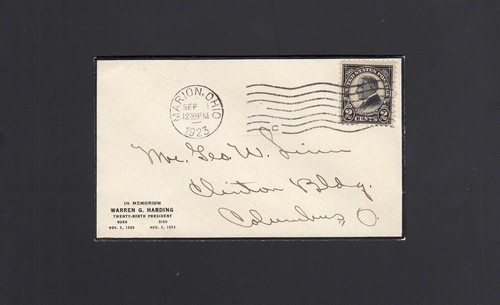 MARION, OHIO
SEP 1
12 30 PM
1923
UNITED STATES POSTAGE
2 CENTS 2
Geo. W.
Clinton Bldg.
Columbus, O.
IN MEMORIUM
WARREN G. HARDING
TWENTY-NINTH PRESIDENT
BORN DIED
NOV. 2, 1865 AUG. 2, 1923